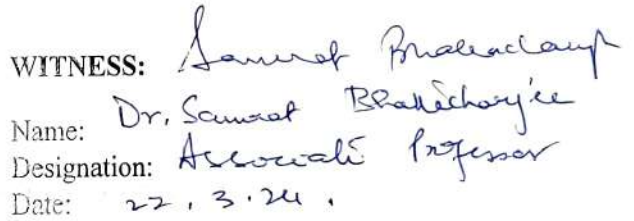 WITNESS: Samrat Bhattacharjee
Name: Dr. Samrat Bhattacharjee
Designation: Associate Professor
Date: 22.3.24.